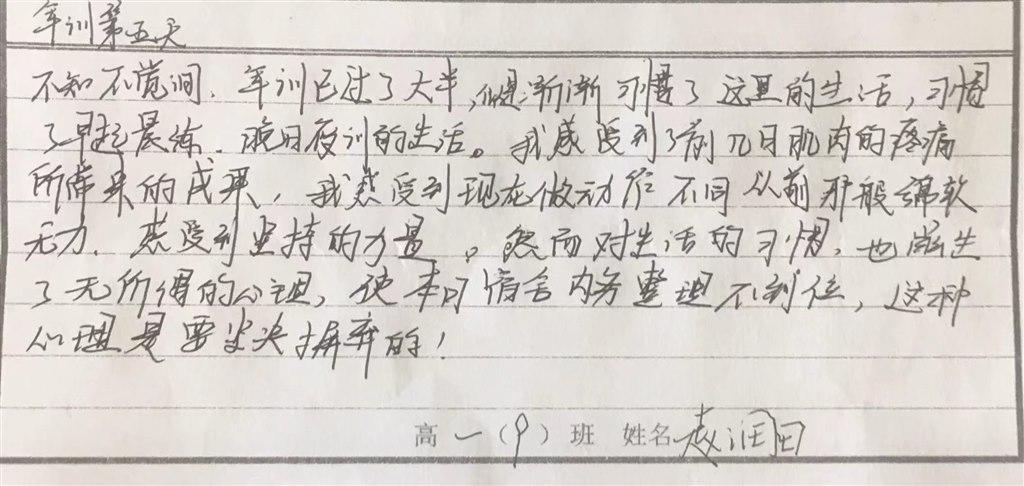 军训第五天
不知不觉间,军训已过了大半,但是渐渐习惯了这里的生活,习惯
了早起晨练、晚归夜训的生活。我感受到了前几日肌肉的疼痛
所带来的成果,我感受到现在做动作不同从前那般绵软
无力,感受到坚持的力量。然而对生活的习惯,也滋生
了无所谓的心理,使本日宿舍内务整理不到位,这种
心理是要坚决摒弃的!
高一(9)班 姓名